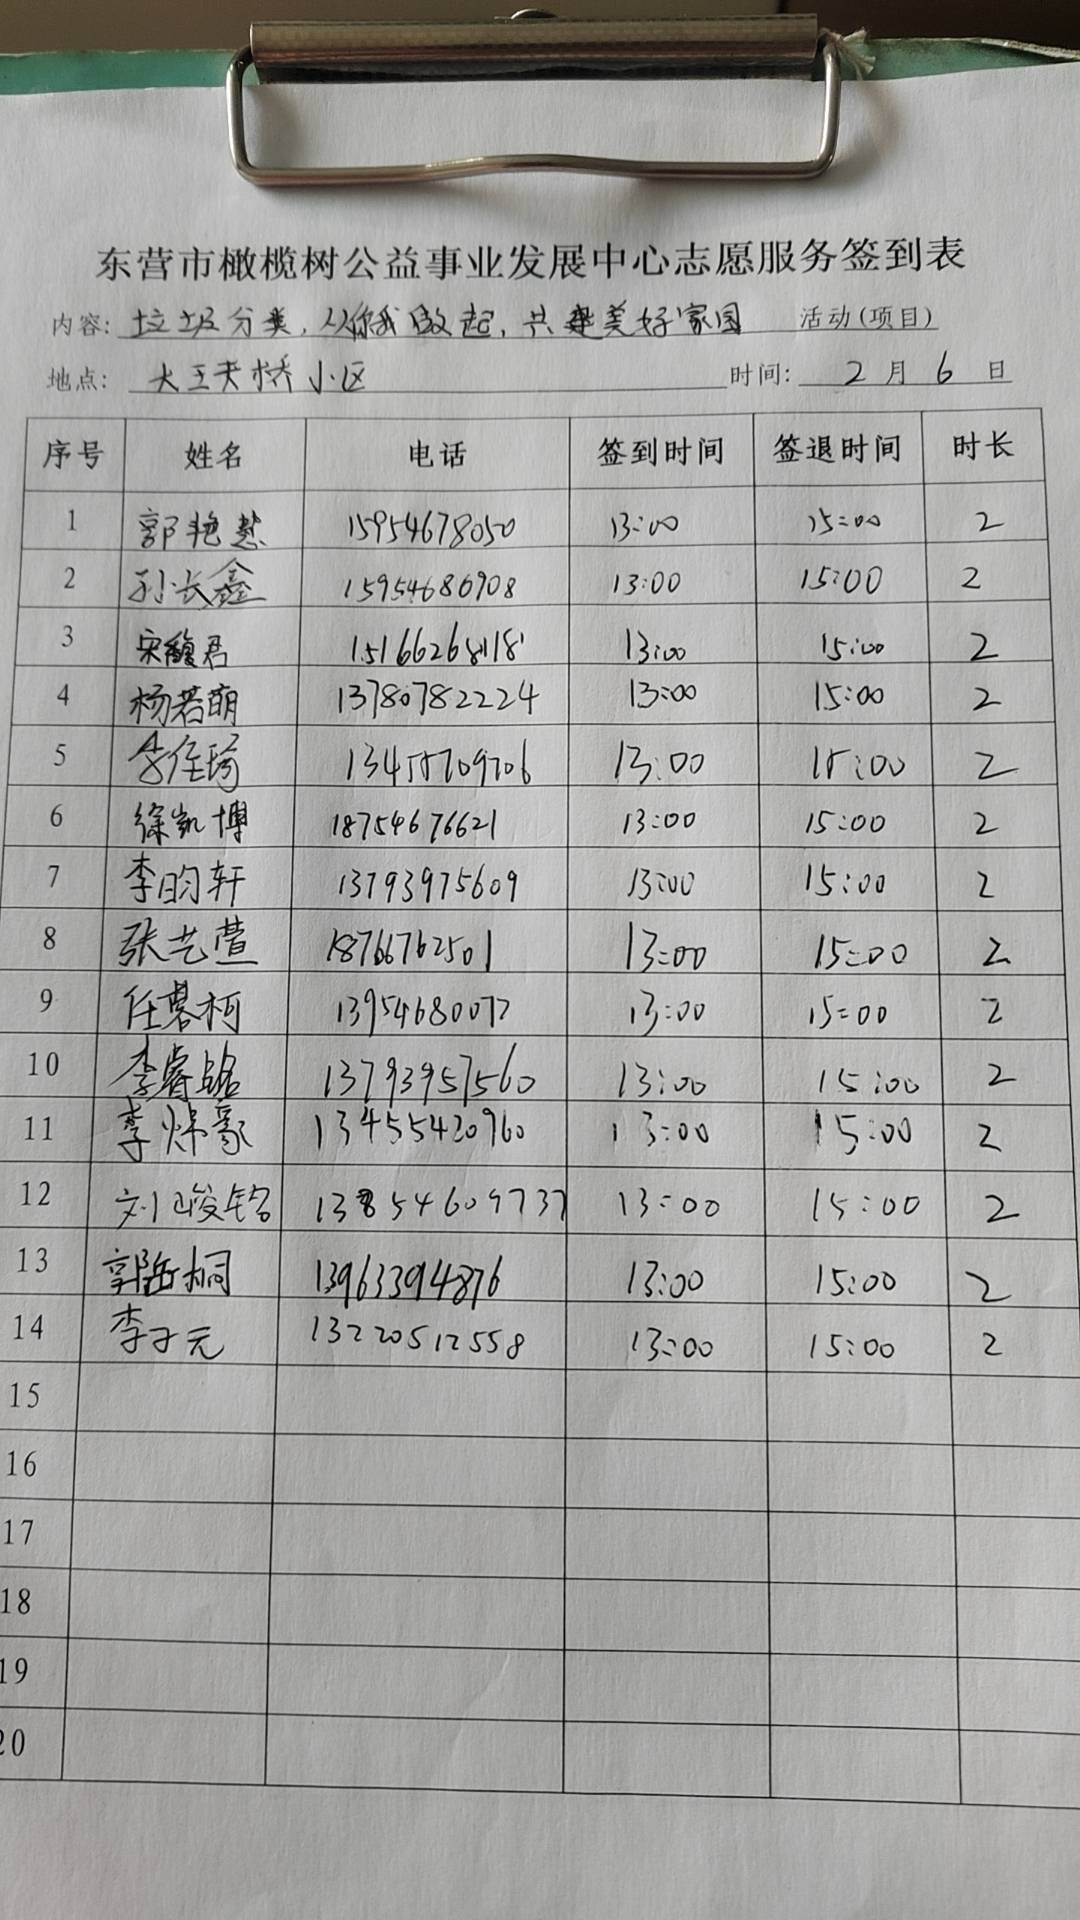 东营市橄榄树公益事业发展中心志愿服务签到表
内容: 垃圾分类,从你我做起,共建美好家园 活动(项目)
地点: 大王天桥小区 时间: 2月6日
序号 姓名 电话 签到时间 签退时间 时长
1 郭艳慧 15954678050 13:00 15:00 2
2 孙长鑫 15954686908 13:00 15:00 2
3 宋馥君 15166268118 13:00 15:00 2
4 杨若萌 13780782224 13:00 15:00 2
5 李任琦 13455709706 13:00 15:00 2
6 徐凯博 18754676621 13:00 15:00 2
7 李昀轩 13793975609 13:00 15:00 2
8 张艺萱 18766762501 13:00 15:00 2
9 任慕柯 13954680072 13:00 15:00 2
10 李睿铭 13793957560 13:00 15:00 2
11 李炜豪 13455420960 13:00 15:00 2
12 刘峻铭 13854609737 13:00 15:00 2
13 郭岳桐 13963394876 13:00 15:00 2
14 李子元 13220512558 13:00 15:00 2
15
16
17
18
19
20